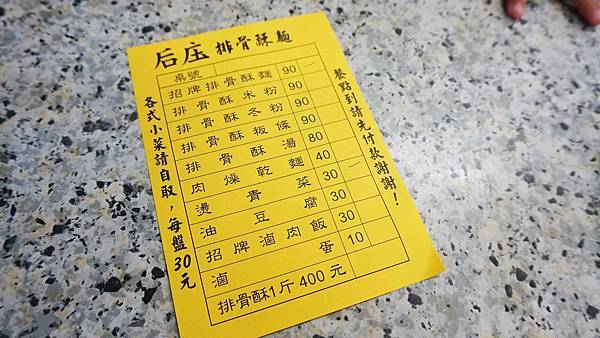 后庄排骨酥麵
桌號
招牌排骨酥麵 90 一
排骨酥米粉 90
排骨酥冬粉 90
排骨酥粄條 90
排骨酥湯 80
肉燥乾麵 40
燙青菜 30 一
油豆腐 30
招牌滷肉飯 30
滷蛋 10
排骨酥1斤 400 元
各式小菜請自取，每盤30元
餐點到請先付款謝謝！